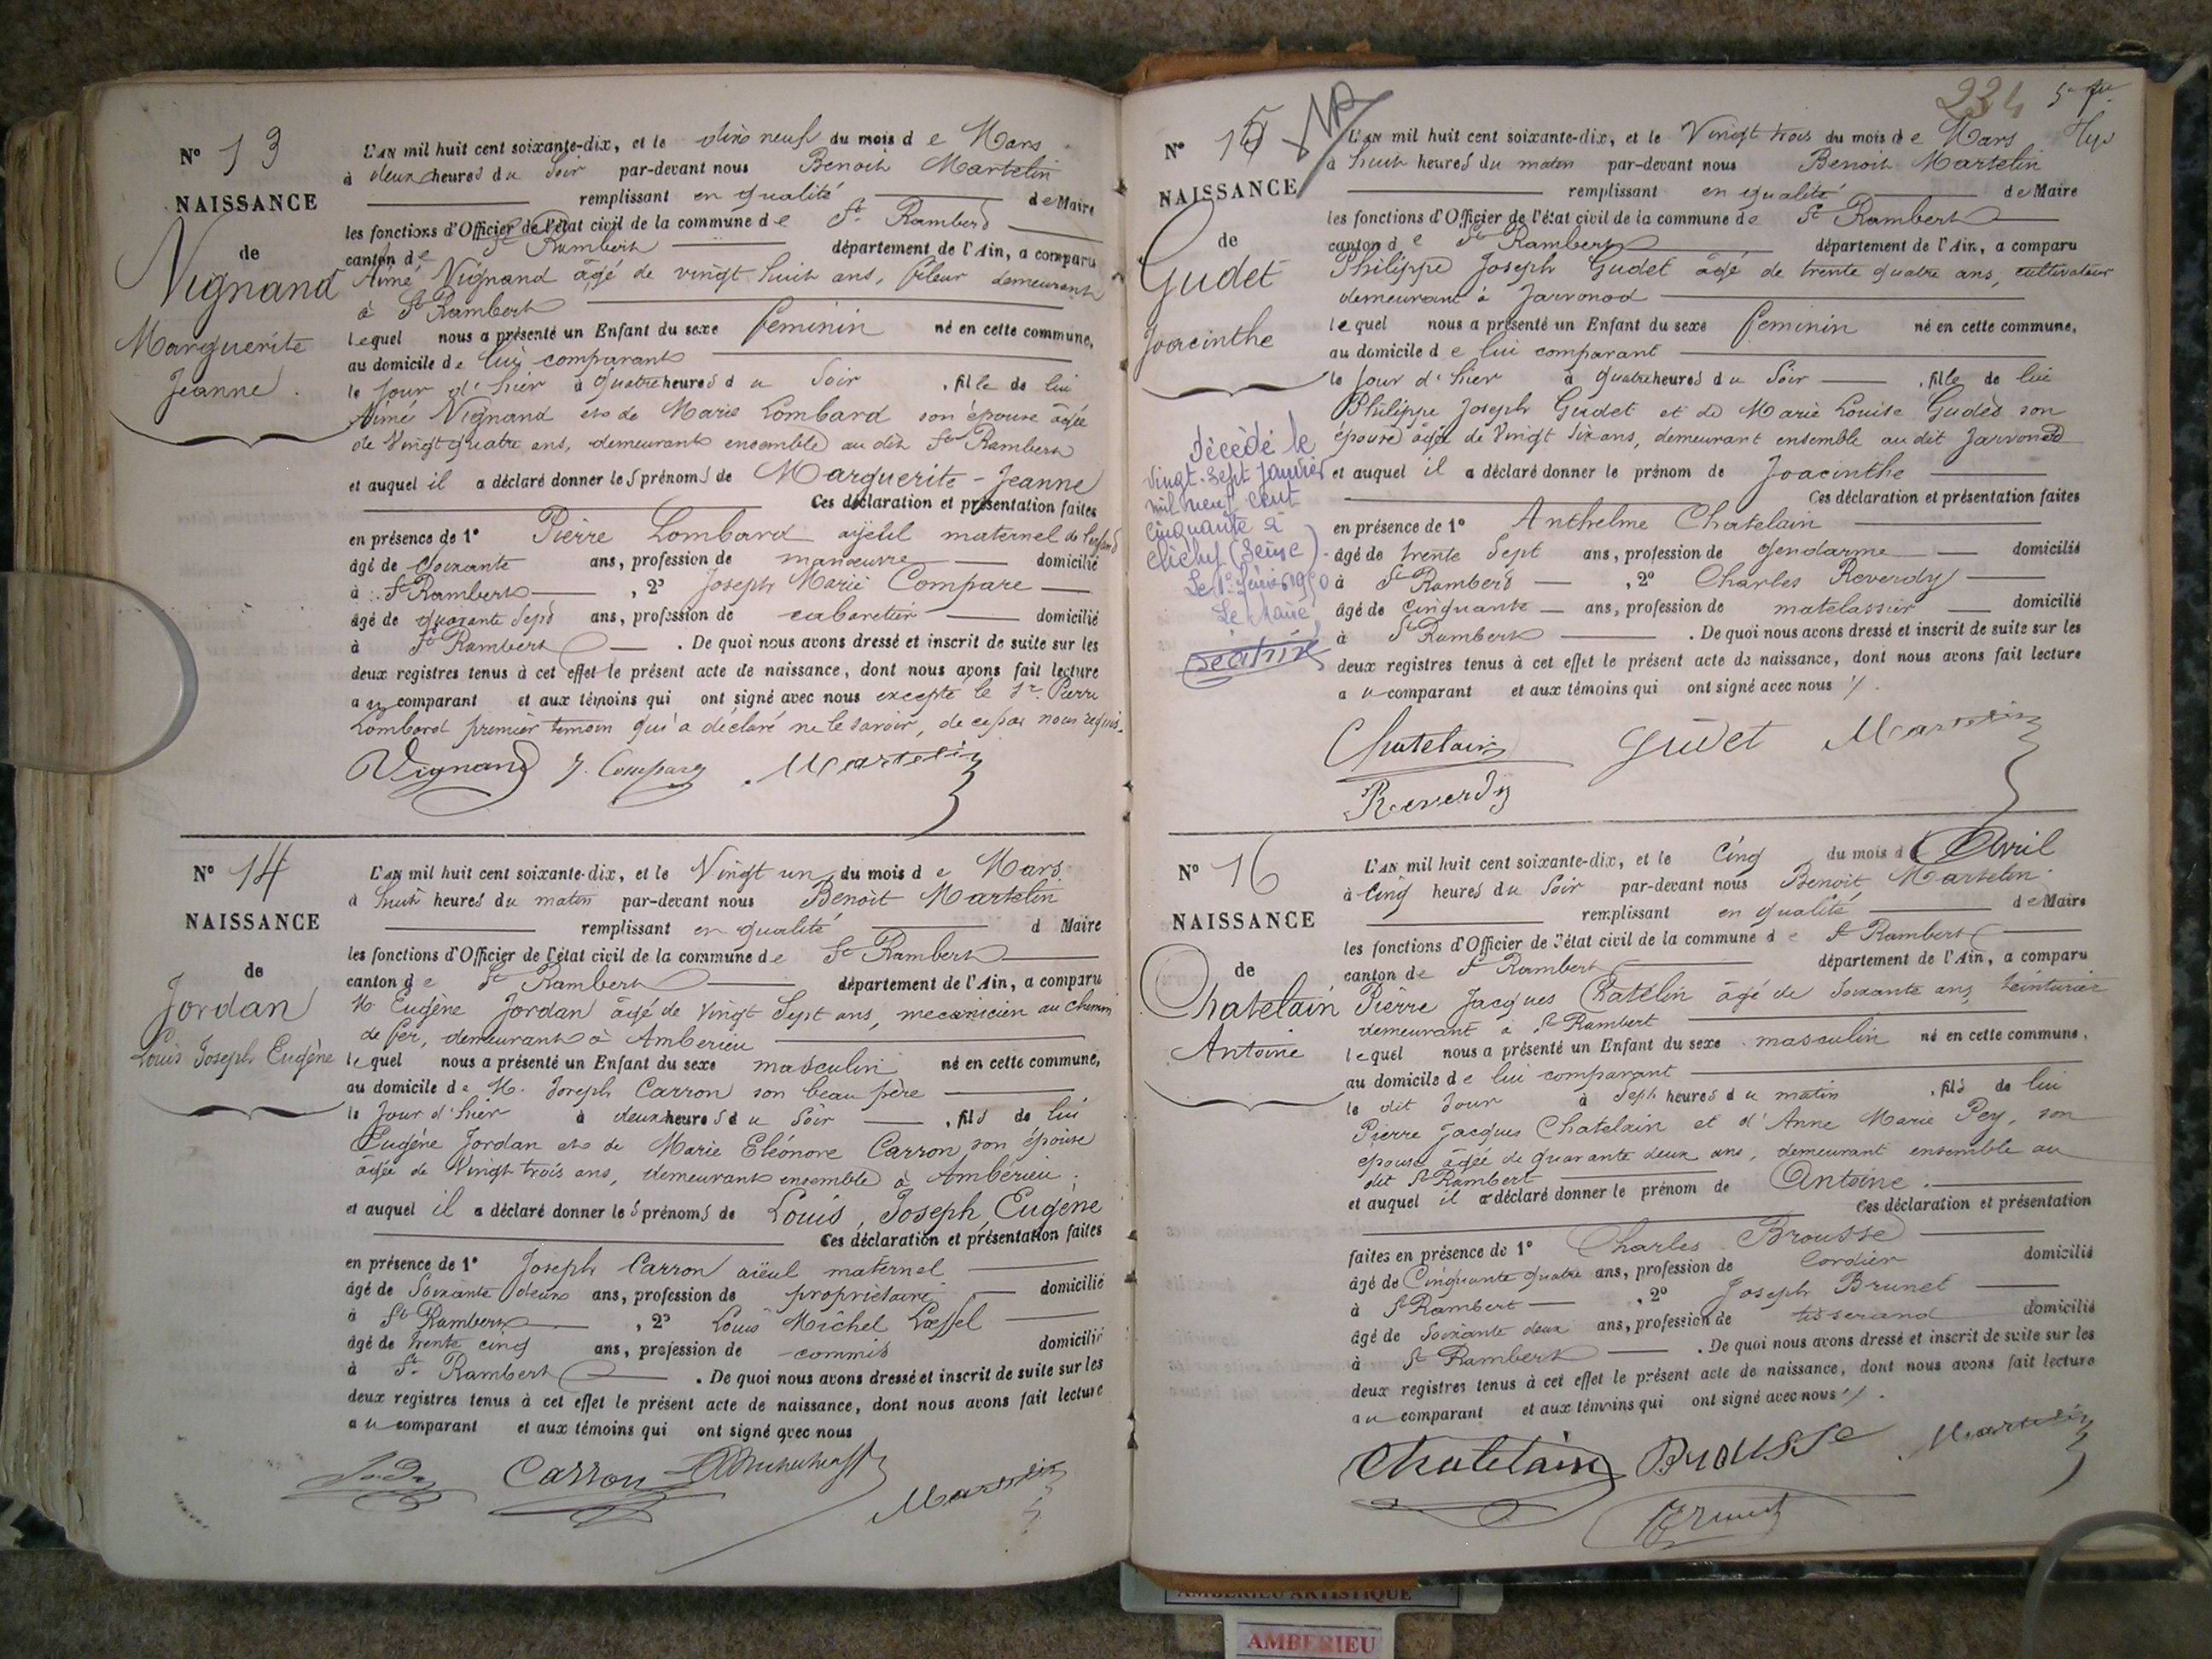 N° 13
NAISSANCE
de
Vignand
Marguerite
Jeanne.
L'AN mil huit cent soixante-dix, et le dix neuf du mois de Mars
à deux heures du Soir par-devant nous Benoit Martelin
remplissant en qualité de Maire
les fonctions d'Officier de l'état civil de la commune de St Rambert
canton de St Rambert département de l'Ain, a comparu
Aimé Vignand âgé de vingt huit ans, fileur demeurant
à St Rambert
lequel nous a présenté un Enfant du sexe féminin né en cette commune,
au domicile de lui comparant
le jour d'hier à quatre heures du Soir , fille de lui
Aimé Vignand et de Marie Lombard son épouse âgée
de Vingt quatre ans, demeurant ensemble au dit St Rambert
et auquel il a déclaré donner les prénoms de Marguerite - Jeanne
Ces déclaration et présentation faites
en présence de 1° Pierre Lombard ayeul maternel de l'enfant
âgé de soixante ans, profession de manœuvre domicilié
à St Rambert , 2° Joseph Marie Compare
âgé de quarante sept ans, profession de cabaretier domicilié
à St Rambert . De quoi nous avons dressé et inscrit de suite sur les
deux registres tenus à cet effet le présent acte de naissance, dont nous avons fait lecture
au comparant et aux témoins qui ont signé avec nous excepté le Sr Pierre
Lombard premier témoin qui a déclaré ne le savoir, de ce par nous requis.
Vignand J. Compare Martelin
N° 14
NAISSANCE
de
Jordan
Louis Joseph Eugène
L'AN mil huit cent soixante-dix, et le Vingt un du mois de Mars
à huit heures du matin par-devant nous Benoit Martelin
remplissant en qualité d Maire
les fonctions d'Officier de l'état civil de la commune de St Rambert
canton de St Rambert département de l'Ain, a comparu
Mr Eugène Jordan âgé de vingt Sept ans, mecanicien au chemin
de fer, demeurant à Amberieu
lequel nous a présenté un Enfant du sexe masculin né en cette commune,
au domicile de M. Joseph Carron son beau père
le jour d'hier à deux heures du Soir , fils de lui
Eugène Jordan et de Marie Eléonore Carron, son épouse
âgée de Vingt trois ans, demeurant ensemble à Ambérieu,
et auquel il a déclaré donner les prénoms de Louis, Joseph, Eugène
Ces déclaration et présentation faites
en présence de 1° Joseph Carron aïeul maternel
âgé de Soixante deux ans, profession de propriétaire domicilié
à St Rambert , 2° Louis Michel Lœffel
âgé de trente cinq ans, profession de commis domicilié
à St Rambert . De quoi nous avons dressé et inscrit de suite sur les
deux registres tenus à cet effet le présent acte de naissance, dont nous avons fait lecture
au comparant et aux témoins qui ont signé avec nous
Carron Martelin
234
N° 15
NAISSANCE
de
Gudet
Joacinthe
L'AN mil huit cent soixante-dix, et le Vingt trois du mois de Mars
à huit heures du matin par-devant nous Benoit Martelin
remplissant en qualité de Maire
les fonctions d'Officier de l'état civil de la commune de St Rambert
canton de St Rambert département de l'Ain, a comparu
Philippe Joseph Gudet âgé de trente quatre ans, cultivateur
demeurant à Javronod
lequel nous a présenté un Enfant du sexe féminin né en cette commune,
au domicile de lui comparant
le jour d'hier à quatre heures du Soir , fille de lui
Philippe Joseph Gudet et de Marie Louise Gudet son
épouse âgée de Vingt Six ans, demeurant ensemble au dit Javronod
et auquel il a déclaré donner le prénom de Joacinthe
Ces déclaration et présentation faites
en présence de 1° Anthelme Chatelain
âgé de trente Sept ans, profession de gendarme domicilié
à St Rambert , 2° Charles Reverdy
âgé de cinquante ans, profession de matelassier domicilié
à St Rambert . De quoi nous avons dressé et inscrit de suite sur les
deux registres tenus à cet effet le présent acte de naissance, dont nous avons fait lecture
au comparant et aux témoins qui ont signé avec nous
Chatelain Gudet Martelin
Reverdy
Décédé le
vingt-sept janvier
mil neuf cent
cinquante à
Clichy (Seine).
Le 1er février 1950
Le Maire,
N° 16
NAISSANCE
de
Chatelain
Antoine
L'AN mil huit cent soixante-dix, et le Cinq du mois d'Avril
à Cinq heures du Soir par-devant nous Benoit Martelin
remplissant en qualité de Maire
les fonctions d'Officier de l'état civil de la commune de St Rambert
canton de St Rambert département de l'Ain, a comparu
Pierre Jacques Chatelin âgé de Soixante ans, teinturier
demeurant à St Rambert
lequel nous a présenté un Enfant du sexe masculin né en cette commune,
au domicile de lui comparant
le dit Jour à Sept heures du matin , fils de lui
Pierre Jacques Chatelain et d'Anne Marie Pey, son
epouse âgée de quarante deux ans, demeurant ensemble au
dit St Rambert
et auquel il a déclaré donner le prénom de Antoine.
Ces déclaration et présentation
faites en présence de 1° Charles Brousse
âgé de Cinquante quatre ans, profession de Cordier domicilié
à St Rambert , 2° Joseph Brunet
âgé de Soixante deux ans, profession de tisserand domicilié
à St Rambert . De quoi nous avons dressé et inscrit de suite sur les
deux registres tenus à cet effet le présent acte de naissance, dont nous avons fait lecture
au comparant et aux témoins qui ont signé avec nous
Chatelain Brousse Martelin
Brunet
AMBERIEU ARTISTIQUE
AMBERIEU